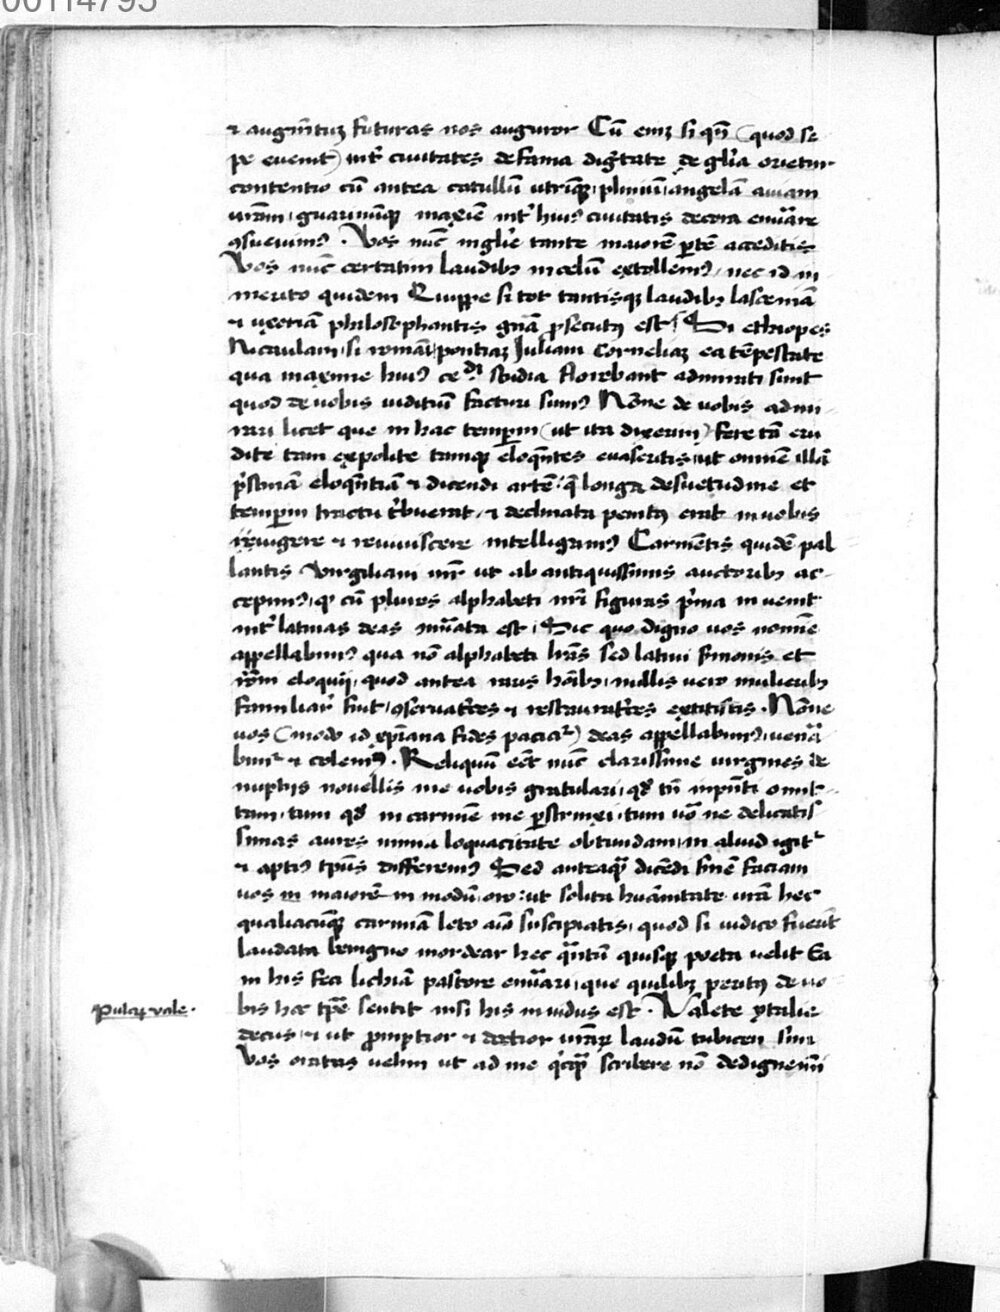 00114795
⁊ augm̄tuȝ futuras nos auguror Cū eniȝ si qn̄ (quod se
pe euenit) int̄ ciuitates de fama dig̃tate de gl̃ia orietur
contentio cū antea catullū utrūq; pliniū, angelā auiam
ur̃am, guarinūq; maxīe int̄ huiꝰ ciuitatis decora enūare
ꝯsueuimꝰ. Vos nūc in gl̃ie tante maiorē ptē acceditis
Vos nūc certatim laudibꝫ in celū extollemꝰ, nec id in
merito quidem Quippe si tot tantisqꝫ laudibꝫ lasceniā
⁊ uxeriā philosophantis grecia ꝓsecutꝰ est, Si ethiopes
Nicaulam, si romāi pontiaȝ Juliam Corneliaȝ ea tēpestate
qua maxime huiꝰ ce di studia florebant admirati sunt
quod de uobis uiditum facturi sumꝰ Nōne de uobis admi
rari licet que in hac temperim (ut ita dixerim) fere tā eru
dite tam expolite tamqꝫ eloquntes euaseritis, ut omnē illā
pristinā eloquntiā ⁊ dicendi artē, q̄ longa desuetudine et
temporum tractu t̄buerat, ⁊ declinata penitꝰ erat in uobis
reuigere ⁊ reuiuiscere intelligamꝰ Carmētis quidē pal
lantis Virgiliani mr̄ ut ab antiquissimis auctoribꝫ ac
cepimꝰ, qꝫ cū plures alphabeti nr̄i figuras p̄ma inuenit
int̄ latinas deas nūata est, Sic quo digno uos nomīe
appellabimꝰ qua nō alphabeti lr̄as sed latini smonis et
eloquij, quod antea raris hoībꝫ, nullis uero mulieribꝫ
familiar̄ fuit, ꝯseruatͥces ⁊ restauratͥces extitistis. Nōne
uos (modo id xp̄iana fides paciat̄) deas appellabimꝰ, uen̄a
bimꝰ ⁊ colemꝰ. Reliquū eēt nūc clarissime uirgines de
nuptijs nouellis me uobis gratulari, qd̄ tn̄ inpn̄ti omit
tam, tum qd̄ in carmīe me pstrinxi, tum uo ne delicatis
simas aures nimia loquacitate obtundam, in aliud igit̄
⁊ aptiꝰ tp̄us differemꝰ Sed anteaq̄ dicēdi finē faciam
uos in maiorē in modū oro, ut solita huāitate ur̄a hec
qualiacūqꝫ carmīa leto aīo suscipiatis, quod si iudico fuerit
laudata benigno mordear hec q̄ntū quisqꝫ poeta uelit Ea
in his feci lichiā pastore enūari, que quilibꝫ peritꝰ de uo
bis hac tp̄e sentit nisi his inuidus est. Valete ytalie
decus, ⁊ ut promptior ⁊ doctior ur̄aꝝ laudū tubicen sim
Vos oratas uelim ut ad me q̄cqꝫ scribere nō dedignemi